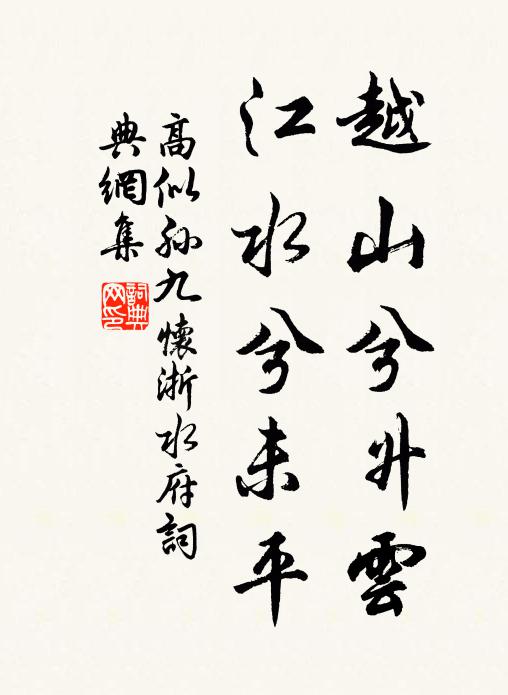 越山兮升雲
江水兮未平
高似孫九懷浙水府詞
典網集
詞典網印